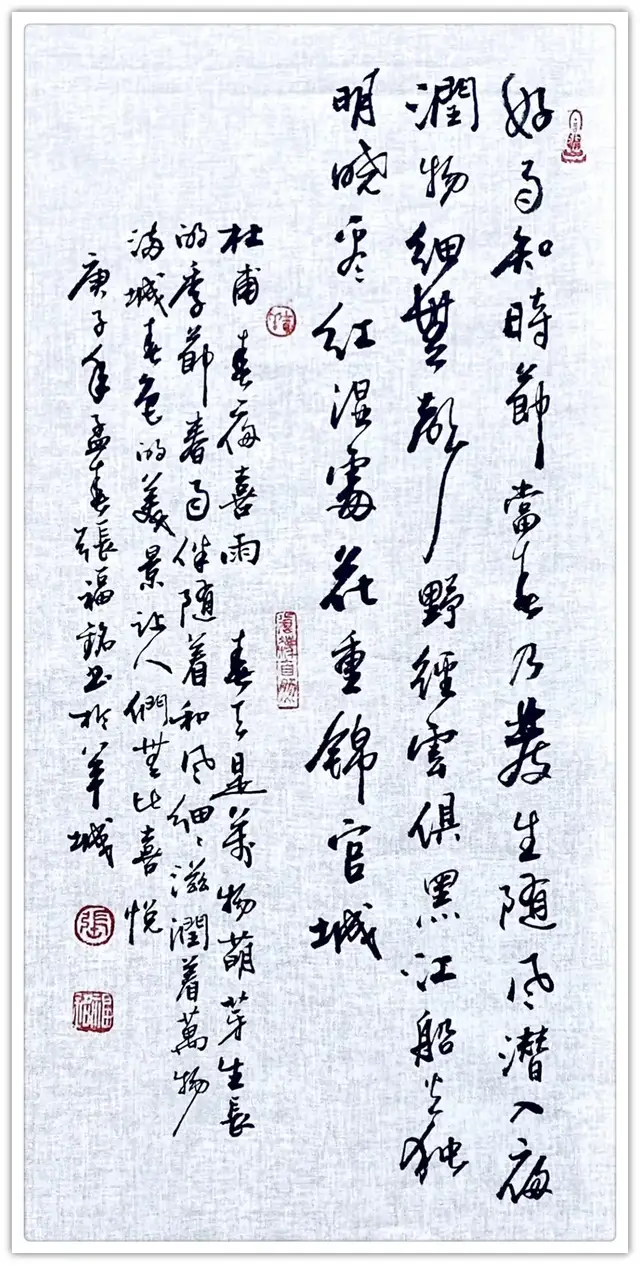 好雨知時節當春乃發生随风潜入夜
潤物細無聲野徑雲俱黑江船火独
明晓看红湿處花重錦官城
杜甫 春夜喜雨 春天是萬物萌芽生長
的季節春雨伴随着和风細々滋潤着萬物
满城春色的美景让人們無比喜悦
庚子年孟春張福銘书於羊城
張